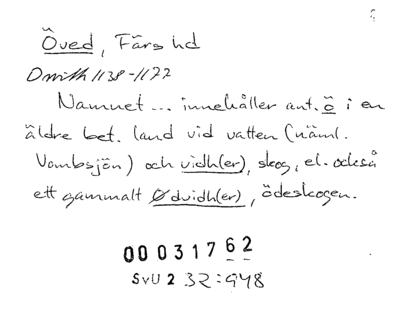 Öved, Färs hd
Dmith 1138-1172
Namnet... innehåller ant. ö i en
äldre bet. land vid vatten (näml.
Vombsjön) och vidh(er), skog, el. också
ett gammalt Ødvidh(er), ödeskogen.
00031762
SvU 2 32:948